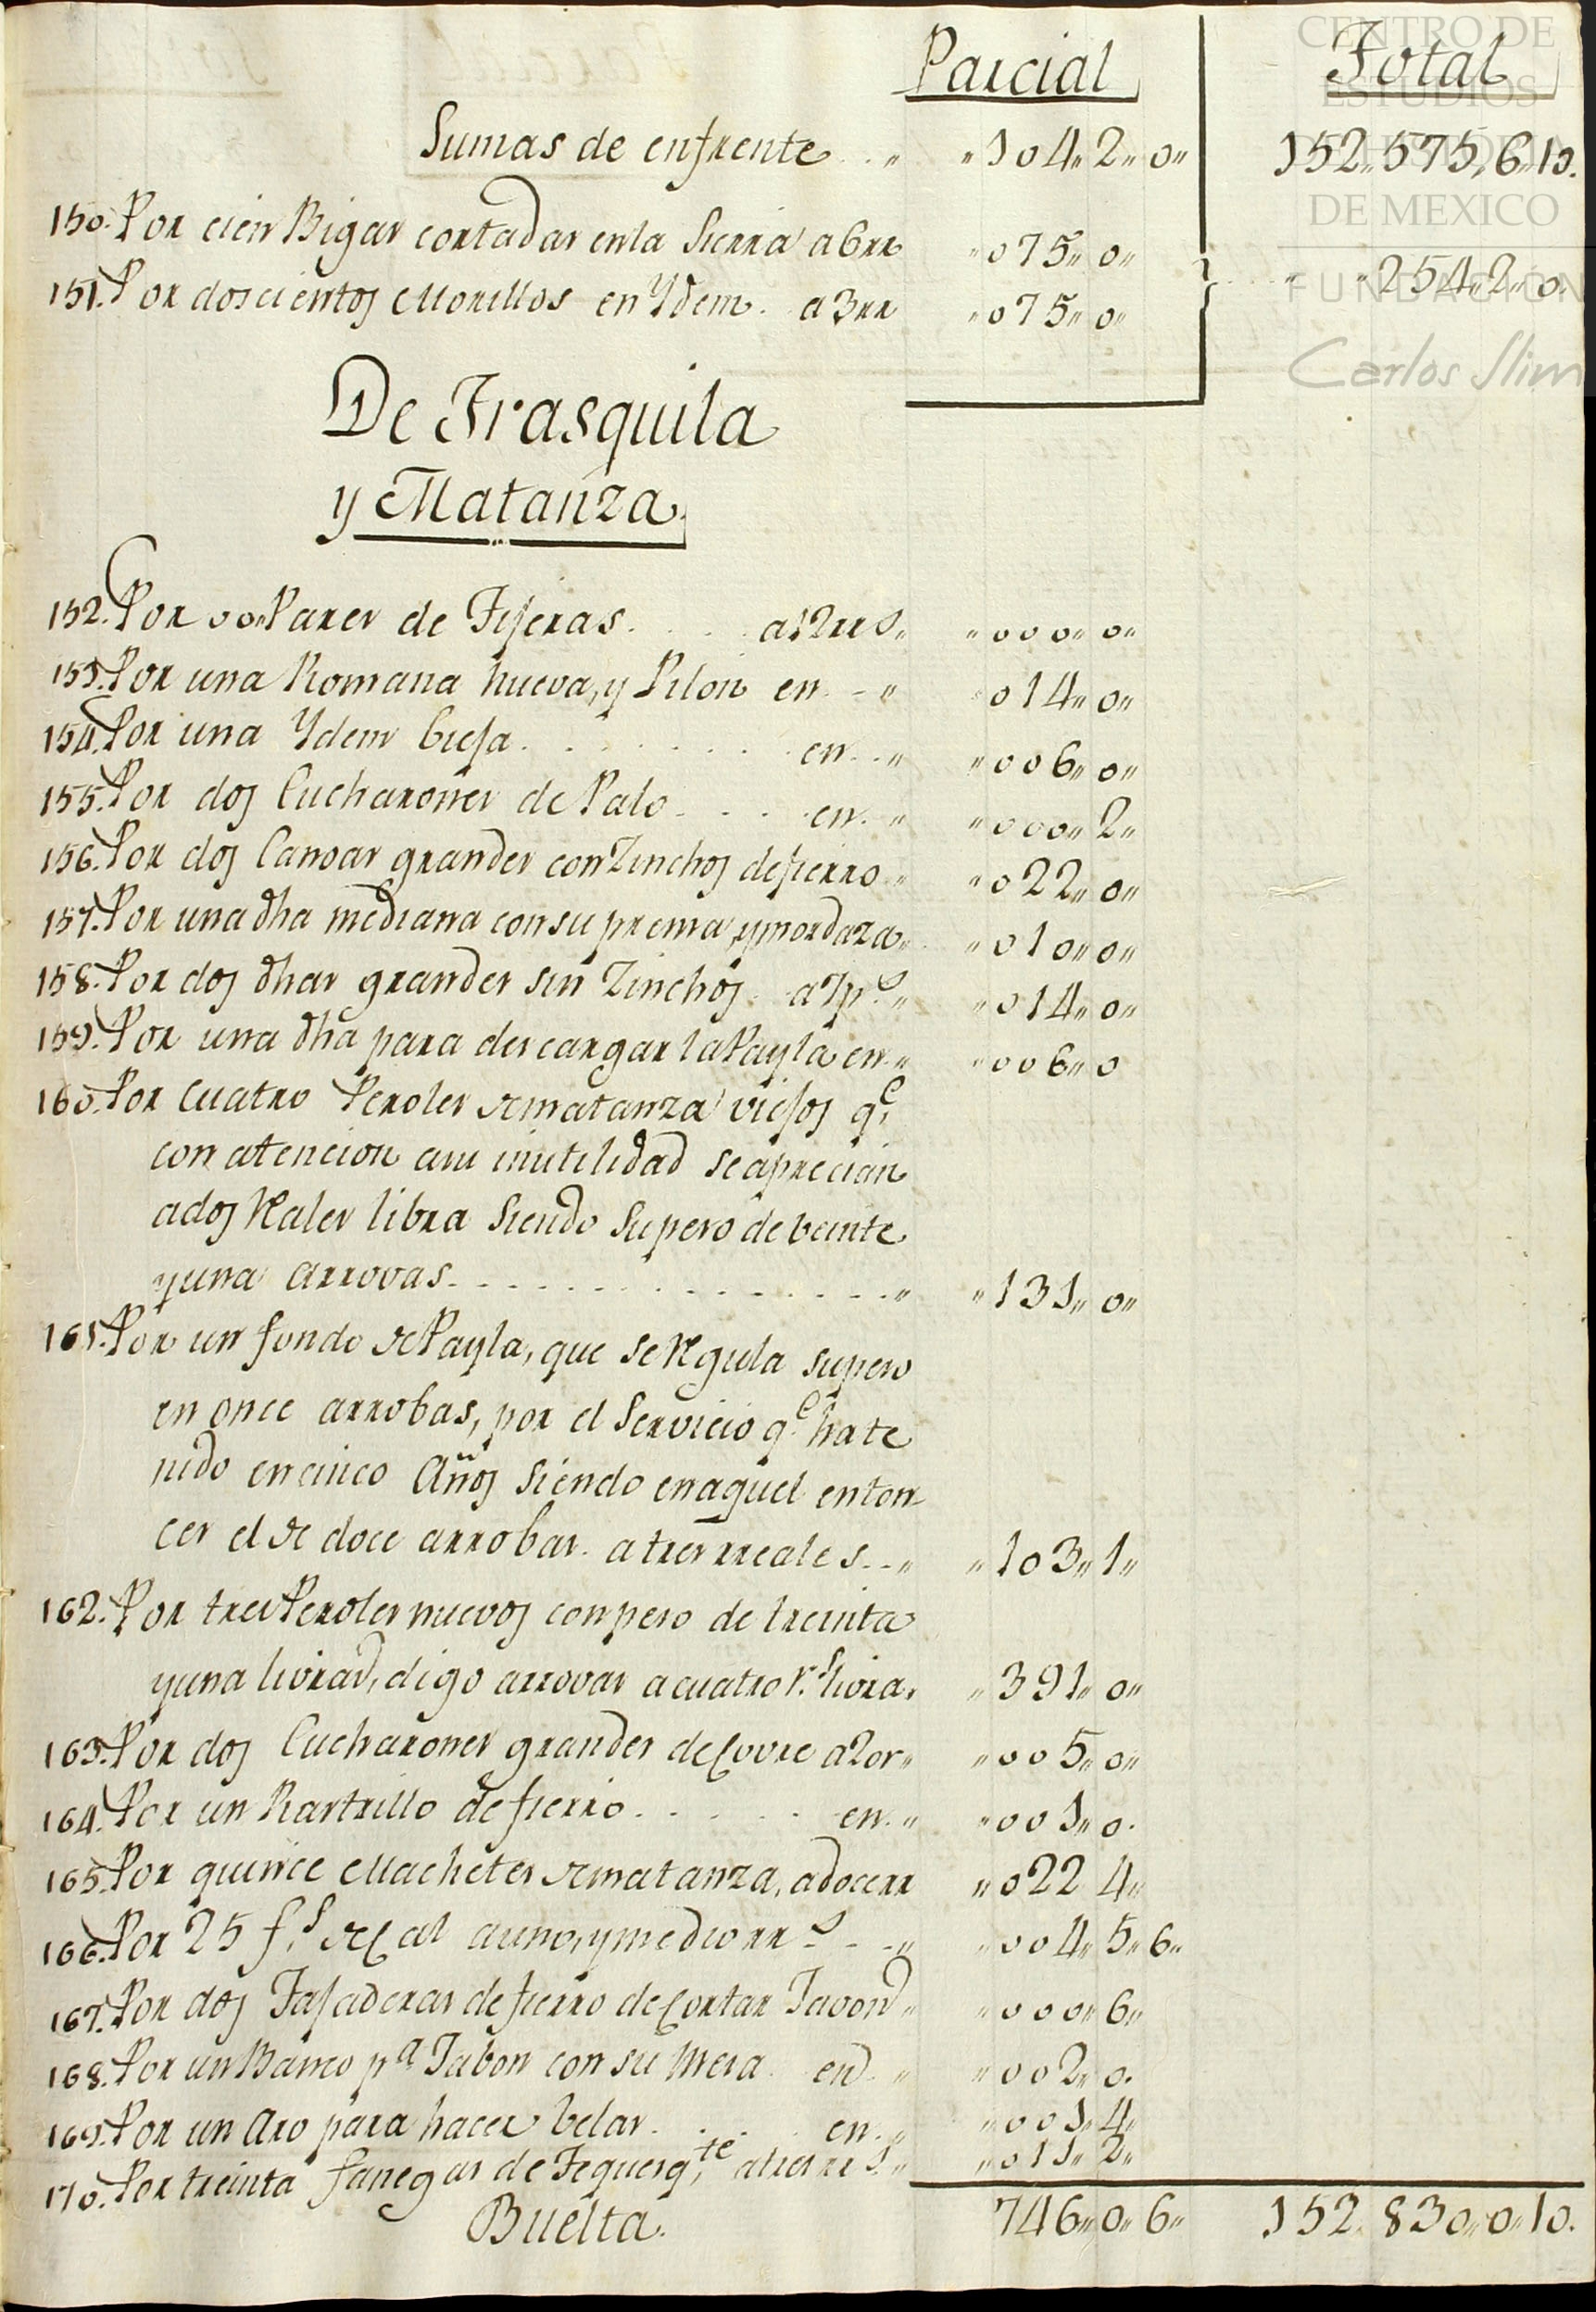 Parcial Total
Sumas de enfrente . . „ „104„2„0„ 152„575„6„10.
150. Por cien Bigas cortadas en la Sierra a 6 rr „075„0„
151. Por doscientos Morillos en Ydem. a 3 rr „075„0„ „254„2„0.
De Trasquila
y Matanza.
152. Por 00„ Pares de Tijeras. . . . a 12 rr s. „000„0„
153. Por una Romana nueva, y Pilon en . - „ „014„0„
154. Por una Ydem bieja. . . . . . . . en. . „ „006„0„
155. Por dos Cucharones de Palo . . . . en. „ „000„2„
156. Por dos Canoas grandes con Zinchos de fierro. „ „022„0„
157. Por una dha mediana con su prensa y mordaza „ „010„0„
158. Por dos dhas grandes sin Zinchos. a 7 p.s „ „014„0„
159. Por una dha para descargar la Payla en „ „006„0
160. Por cuatro Peroles de matanza viejos q.e
con atencion a su inutilidad se aprecian
a dos Rales libra siendo su peso de beinte
y una arrovas. . . . . . . . . . . . . . „ „131„0„
161. Por un fondo de Payla, que se Regula su peso
en once arrobas, por el Servicio q.e ha te
nido en cinco Años siendo en aquel enton
ces el de doce arrobas. a tres rreales. . „ „103„1„
162. Por tres Peroles nuevos con peso de treinta
y una livras, digo arrovas a cuatro r.s livra, „391„0„
163. Por dos Cucharones grandes de Covre a 20 r „ „005„0„
164. Por un Rastrillo de fierro . . . . . . en. „ „001„0.
165. Por quince Machetes de matanza, a doce rr „022 4„
166. Por 25 f.s de Cal a uno, y medio rr s . . „ „004„5„6„
167. Por dos Tajaderas de fierro de Cortar Javon „ „000„6„
168. Por un Banco p.a Jabon con su Mesa en „ „002„0.
169. Por un Aro para hacer belas . . . . en. „ „001„4„
170. Por treinta fanegas de Tequesq.te a tres rr s. „ „011„2„
Buelta. 746„0„6„ 152„830„0„10.
CENTRO DE
ESTUDIOS
DE MEXICO
FUNDACIÓN
Carlos Slim